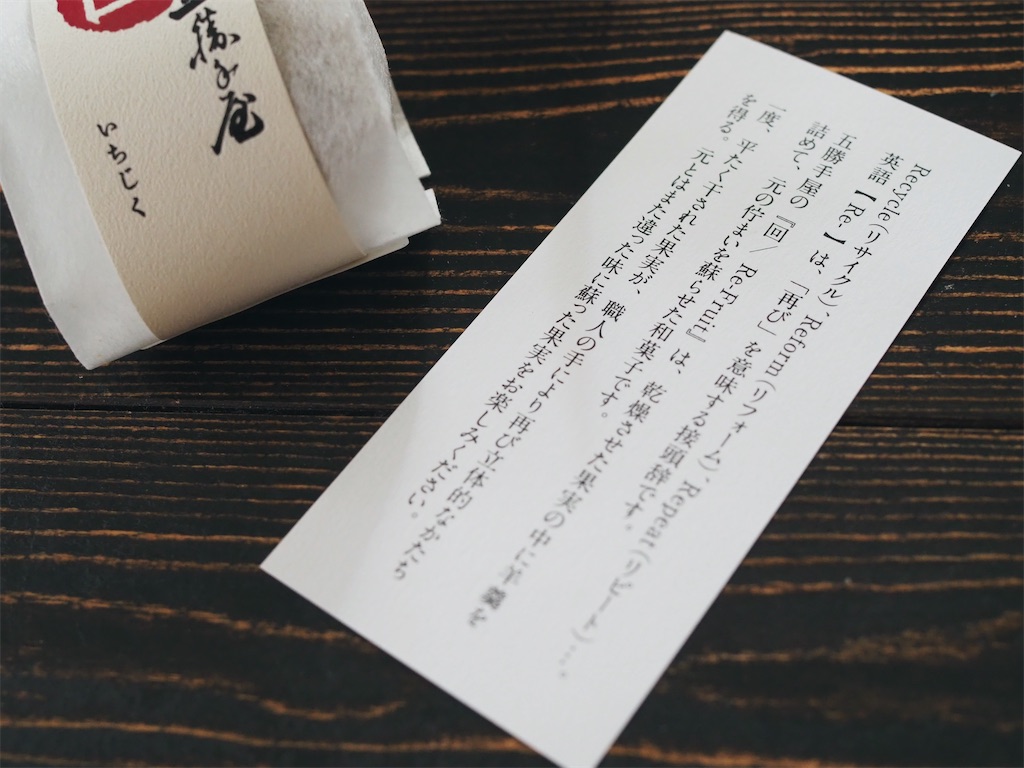 勝手屋
いちじく
Recycle（リサイクル）、Reform（リフォーム）、Repeat（リピート）…。
英語【Re-】は、「再び」を意味する接頭辞です。
五勝手屋の『回／ Re Fruit』は、乾燥させた果実の中に羊羹を
詰めて、元の佇まいを蘇らせた和菓子です。
一度、平たく干された果実が、職人の手により再び立体的なかたち
を得る。元とはまた違った味に蘇った果実をお楽しみください。